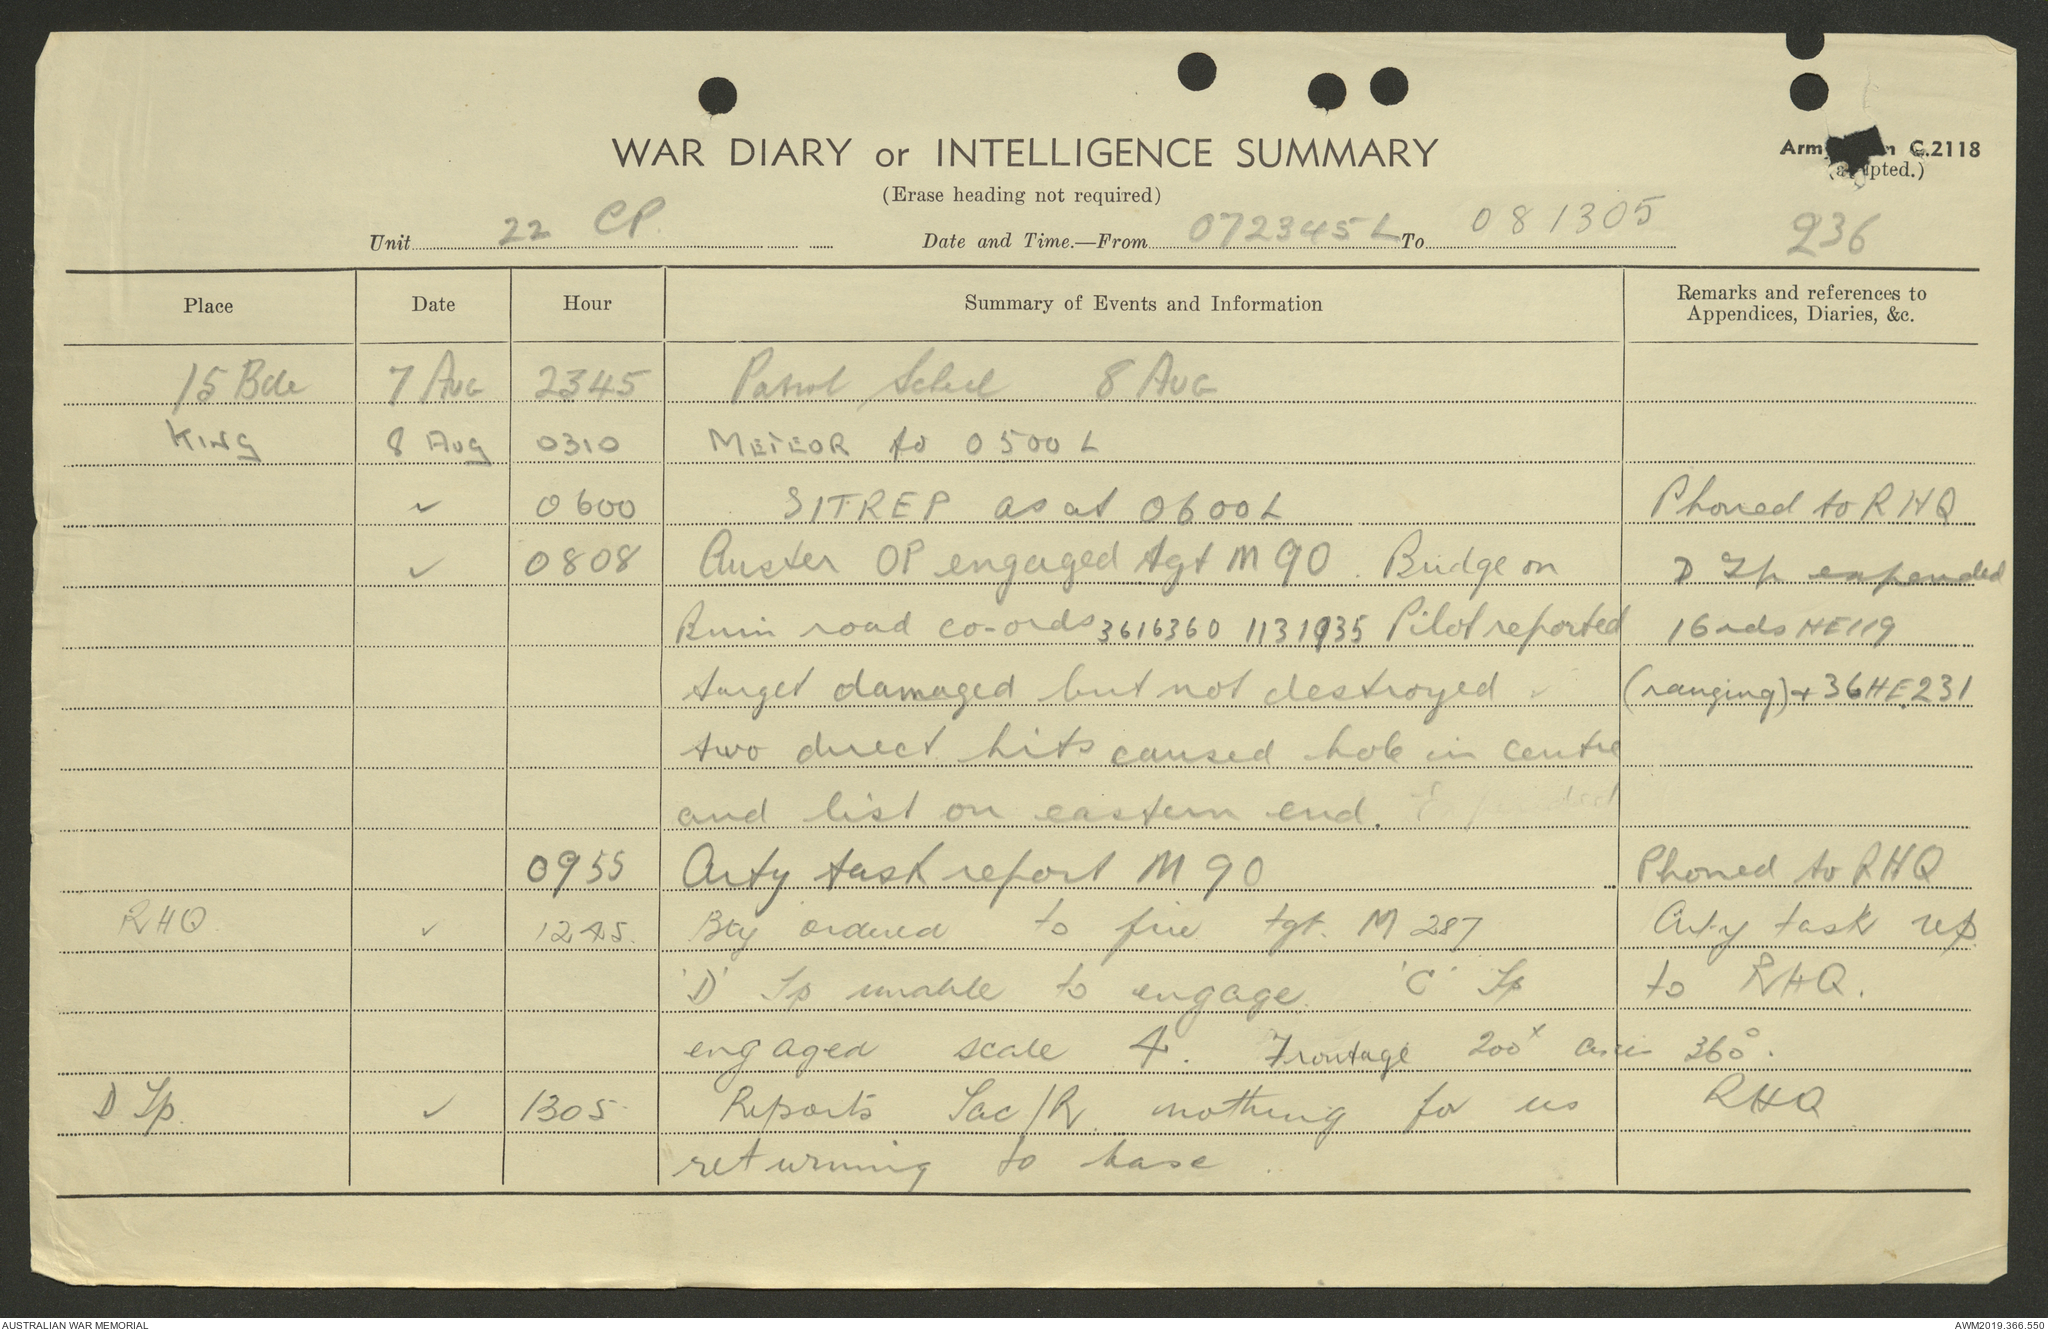 WAR DIARY or INTELLIGENCE SUMMARY
Arm m C.2118
(Erase heading not required)
(adapted.)
Unit 22 CP. Date and Time.—From 072345L To 081305 236
Place Date Hour Summary of Events and Information Remarks and references to
Appendices, Diaries, &c.
15 Bde 7 Aug 2345 Patrol Sched 8 Aug
KING 8 Aug 0310 METEOR to 0500 L
✓ 0600 SITREP as at 0600L Phoned to RHQ
✓ 0808 Auster OP engaged tgt M90. Bridge on D Tp expended
Buin road co-ords 3616360 1131935 Pilot reported 16 rds HE119
target damaged but not destroyed (ranging) + 36 HE.231
two direct hits caused hole in centre
and list on eastern end.
0955 Arty task report M90 Phoned to RHQ
RHQ ✓ 1245. Bty ordered to fire tgt. M 287 Arty task rep
'D' Tp unable to engage. 'C' Tp to RHQ.
engaged scale 4. Frontage 200x 360°.
D Tp. ✓ 1305 Reports Tac/R nothing for us RHQ
returning to base.
AUSTRALIAN WAR MEMORIAL AWM2019.366.550